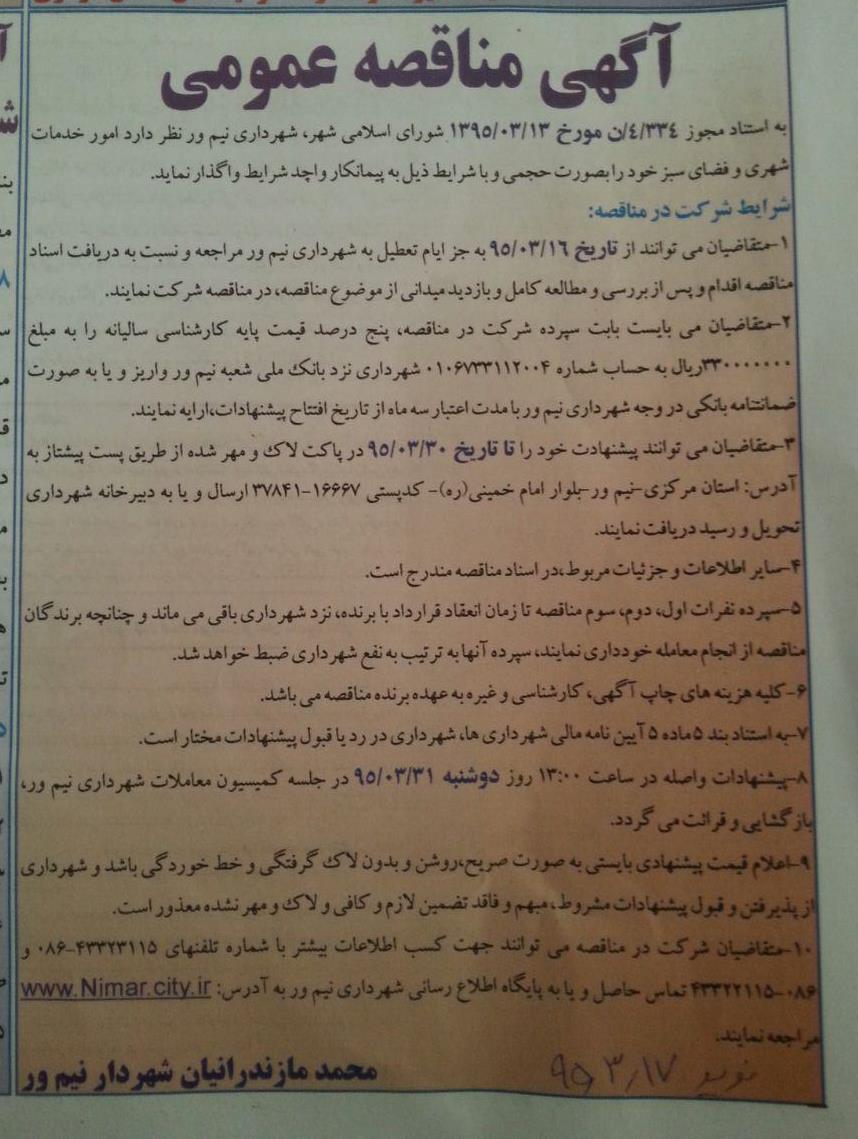 آگهی مناقصه عمومی
به استناد مجوز ٤/٣٣٤/ن مورخ ١٣٩٥/٠٣/١٣ شورای اسلامی شهر، شهرداری نیم ور نظر دارد امور خدمات
شهری و فضای سبز خود را بصورت حجمی و با شرایط ذیل به پیمانکار واجد شرایط واگذار نماید.
شرایط شرکت در مناقصه:
۱-متقاضیان می توانند از تاریخ ٩٥/٠٣/١٦ به جز ایام تعطیل به شهرداری نیم ور مراجعه و نسبت به دریافت اسناد
مناقصه اقدام و پس از بررسی و مطالعه کامل و بازدید میدانی از موضوع مناقصه، در مناقصه شرکت نمایند.
۲-متقاضیان می بایست بابت سپرده شرکت در مناقصه، پنج درصد قیمت پایه کارشناسی سالیانه را به مبلغ
۳۳۰۰۰۰۰۰۰ریال به حساب شماره ۰۱۰۶۷۳۳۱۱۲۰۰۴ شهرداری نزد بانک ملی شعبه نیم ور واریز و یا به صورت
ضمانتنامه بانکی در وجه شهرداری نیم ور با مدت اعتبار سه ماه از تاریخ افتتاح پیشنهادات،ارایه نمایند.
۳-متقاضیان می توانند پیشنهادت خود را تا تاریخ ٩٥/٠٣/٣٠ در پاکت لاک و مهر شده از طریق پست پیشتاز به
آدرس: استان مرکزی-نیم ور-بلوار امام خمینی(ره)- کدپستی ۱۶۶۶۷-۳۷۸۴۱ ارسال و یا به دبیرخانه شهرداری
تحویل و رسید دریافت نمایند.
۴-سایر اطلاعات و جزئیات مربوط،در اسناد مناقصه مندرج است.
۵-سپرده نفرات اول، دوم، سوم مناقصه تا زمان انعقاد قرارداد با برنده، نزد شهرداری باقی می ماند و چنانچه برندگان
مناقصه از انجام معامله خودداری نمایند، سپرده آنها به ترتیب به نفع شهرداری ضبط خواهد شد.
۶-کلیه هزینه های چاپ آگهی، کارشناسی و غیره به عهده برنده مناقصه می باشد.
۷-به استناد بند ۵ ماده ۵ آیین نامه مالی شهرداری ها، شهرداری در رد یا قبول پیشنهادات مختار است.
۸-پیشنهادات واصله در ساعت ۱۳:۰۰ روز دوشنبه ٩٥/٠٣/٣١ در جلسه کمیسیون معاملات شهرداری نیم ور،
بازگشایی و قرائت می گردد.
۹-اعلام قیمت پیشنهادی بایستی به صورت صریح،روشن و بدون لاک گرفتگی و خط خوردگی باشد و شهرداری
از پذیرفتن و قبول پیشنهادات مشروط، مبهم و فاقد تضمین لازم و کافی و لاک و مهر نشده معذور است.
۱۰-متقاضیان شرکت در مناقصه می توانند جهت کسب اطلاعات بیشتر با شماره تلفنهای ۴۳۳۲۳۱۱۵-۰۸۶ و
۴۳۳۲۲۱۱۵-۰۸۶ تماس حاصل و یا به پایگاه اطلاع رسانی شهرداری نیم ور به آدرس: www.Nimar.city.ir
مراجعه نمایند.
محمد مازندرانیان شهردار نیم ور
نوید ۹۵٫۳٫۱۷